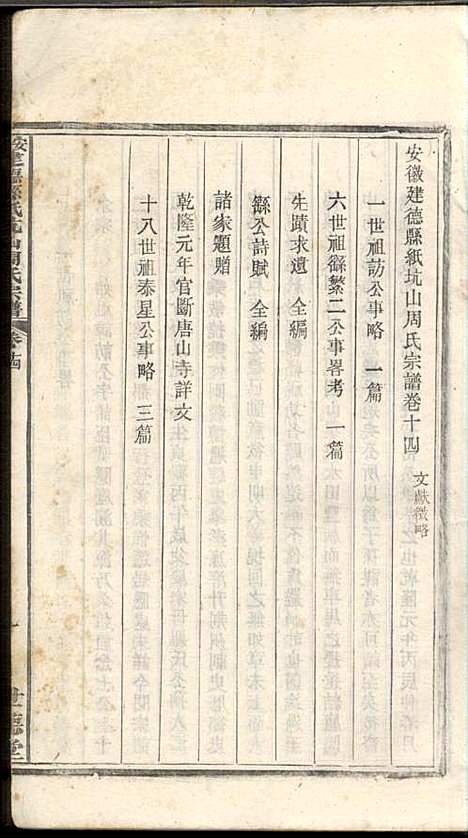 安徽建德縣紙坑山周氏宗譜卷十四 文獻徵略
一世祖訪公事略 一篇
六世祖繇繁二公事畧考 一篇
先蹟求遺 全編
繇公詩賦 全編
諸家題贈
乾隆元年官斷唐山寺詳文
十八世祖泰星公事略 三篇
建德縣紙坑山周氏宗譜 卷十四
一
世德堂